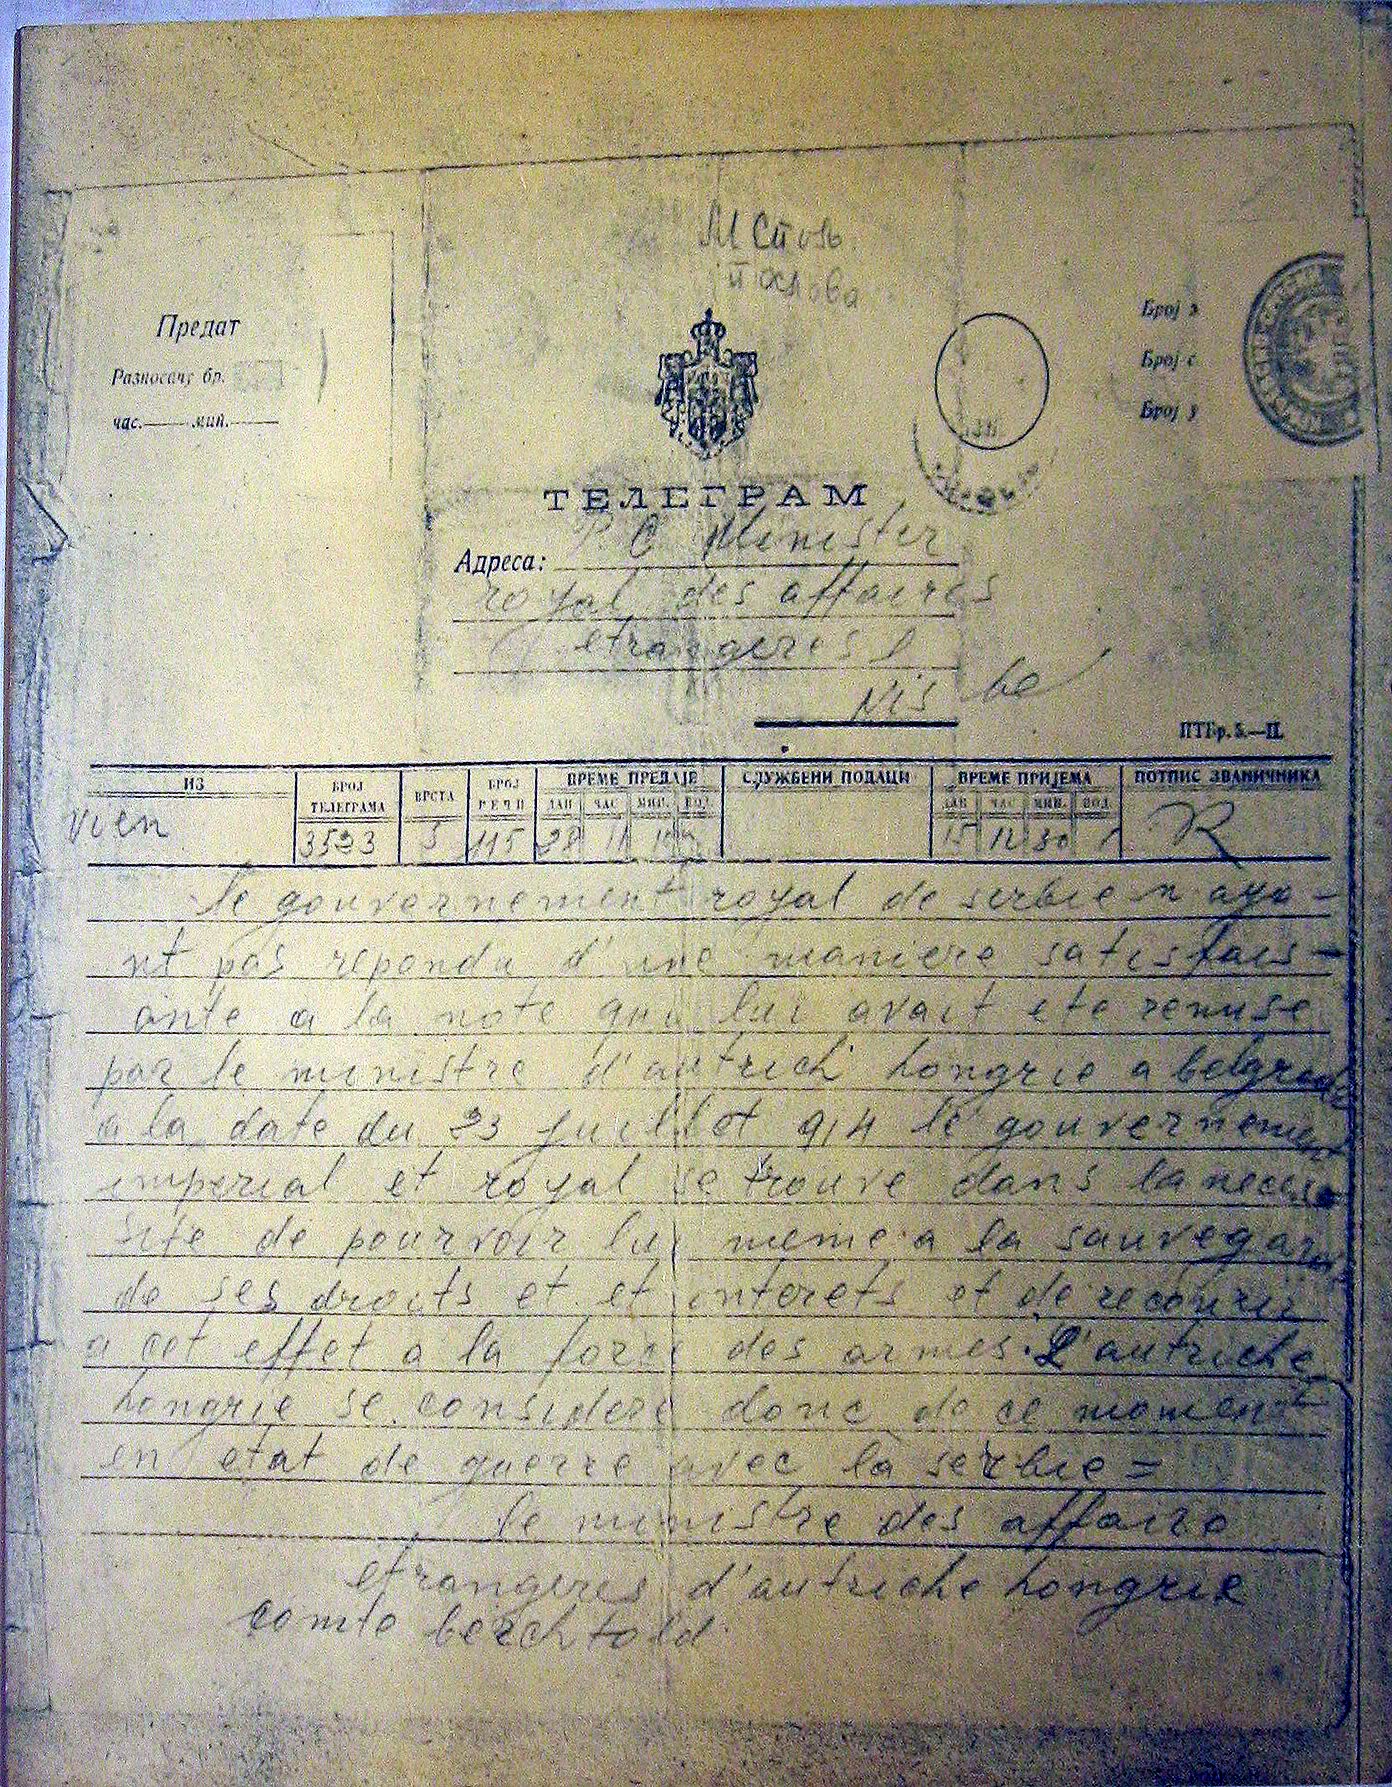 М Спољ
послова
Предат
Разносачу бр.
час. мин.
Број
Број
Број
ТЕЛЕГРАМ
Адреса: Minister
royal des affaires
etrangeres
Nis
ПТБр. 5.—II.
ИЗ
БРОЈ ТЕЛЕГРАМА
ВРСТА
БРОЈ РЕЧИ
ВРЕМЕ ПРЕДАЈЕ
СЛУЖБЕНИ ПОДАЦИ
ВРЕМЕ ПРИЈЕМА
ПОТПИС ЗВАНИЧНИКА
ДАН ЧАС МИН. ПОД. ДАН ЧАС МИН. ПОД.
vien 3523 5 115 28 11 10 15 12 30 R
le gouvernement royal de serbie n aya-
nt pas repondu d'une maniere satisfais-
ante a la note qui lui avait ete remise
par le ministre d'autrich hongrie a belgrade
a la date du 23 juillet 914 le gouvernement
imperial et royal se trouve dans la neces
site de pourvoir lui meme a la sauvegar
de ses droits et et interets et de recourir
a cet effet a la force des armes. L'autriche
hongrie se considere donc de ce moment
en etat de guerre avec la serbie =
le ministre des affaire
etrangeres d'autriche hongrie
comte berchtold